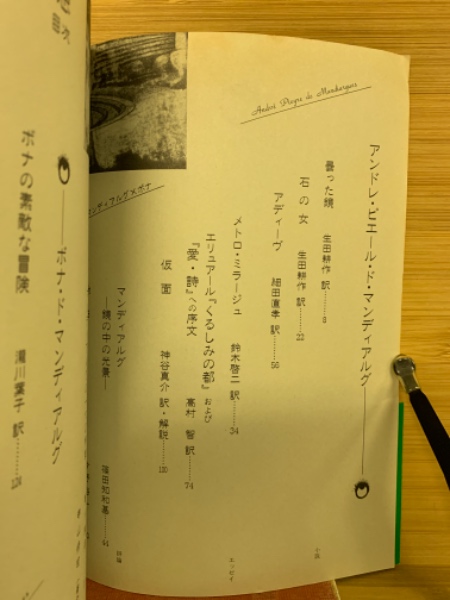 André Pieyre de Mandiargues
アンドレ・ピエール・ド・マンディアルグ
曇った鏡 生田耕作 訳………8
石の女 生田耕作 訳………22
アディーヴ 細田直孝 訳………56
小説
メトロ・ミラージュ 鈴木啓二 訳………34
エリュアール『くるしみの都』および
『愛・詩』への序文 高村 智 訳………74
仮面 神谷真介 訳・解説………110
エッセイ
マンディアルグ
―鏡の中の光景― 篠田知和基………44
評論
マンディアルグ×ボナ
目次
ボナ・ド・マンディアルグ
ボナの素敵な冒険 湯川葉子 訳………124